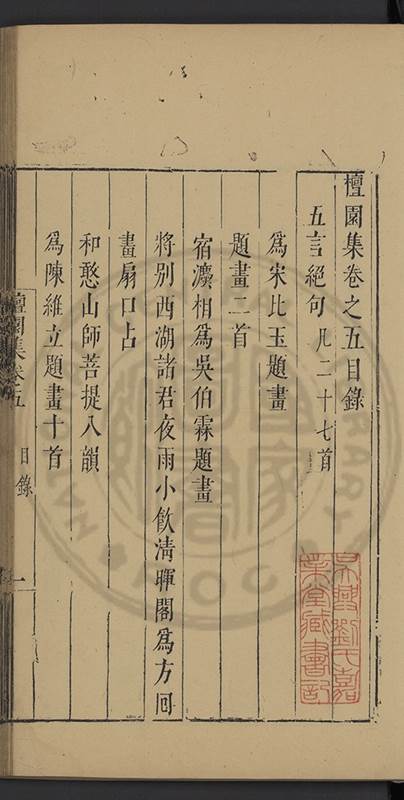 檀園集卷之五目錄
五言絕句凡二十七首
為宋比玉題畫
題畫二首
宿瀪相為吳伯霖題畫
將別西湖諸君夜雨小飲清暉閣為方回
畫扇口占
和憨山師菩提八韻
為陳維立題畫十首
檀園集卷五 目錄 一
吳興劉氏嘉
業堂藏書記